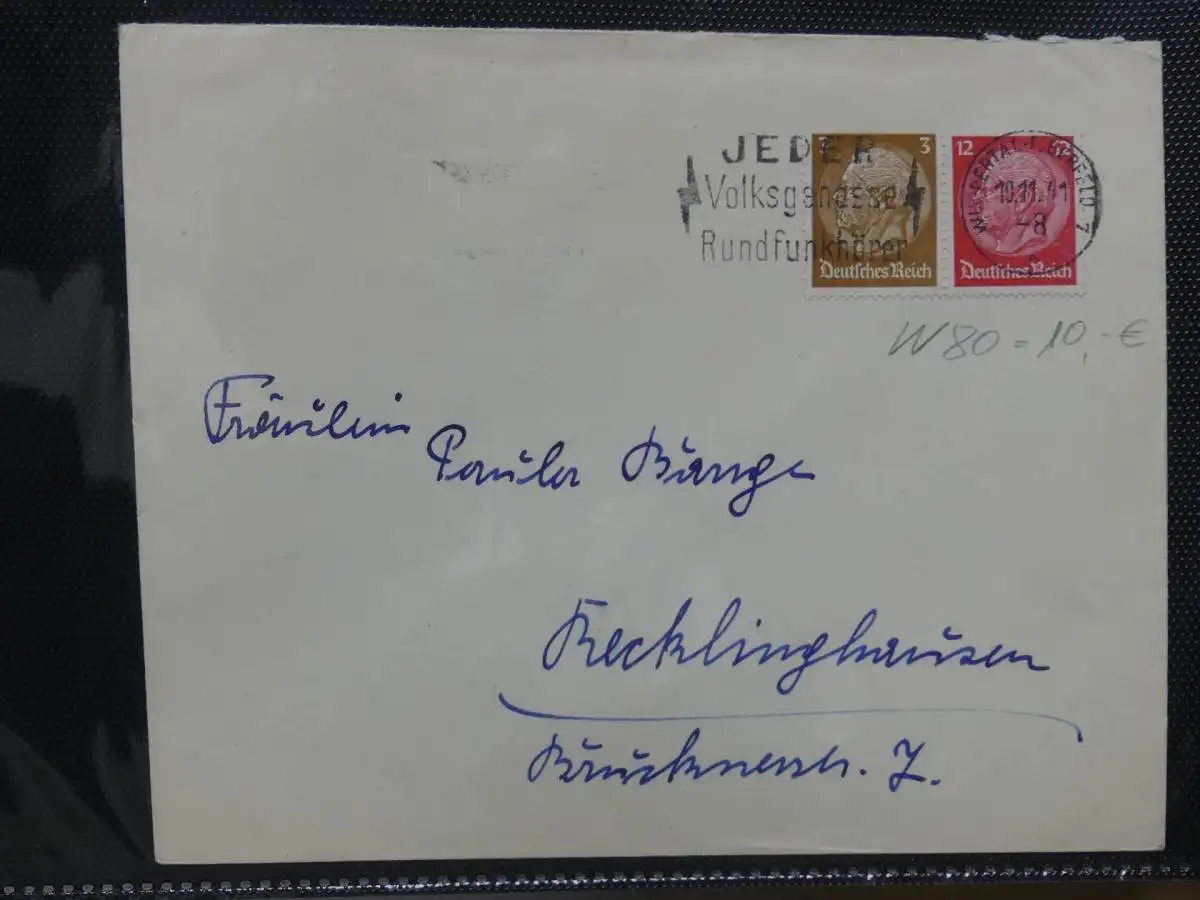 JEDER
Volksgenosse
Rundfunkhörer
3
Deutsches Reich
12 12
Deutsches Reich
WUPPERTAL-ELBERFELD 7
10.11.41
-8
W 80 = 10,- €
Fräulein
Paula Bange
Recklinghausen
Brucknerstr. 7.